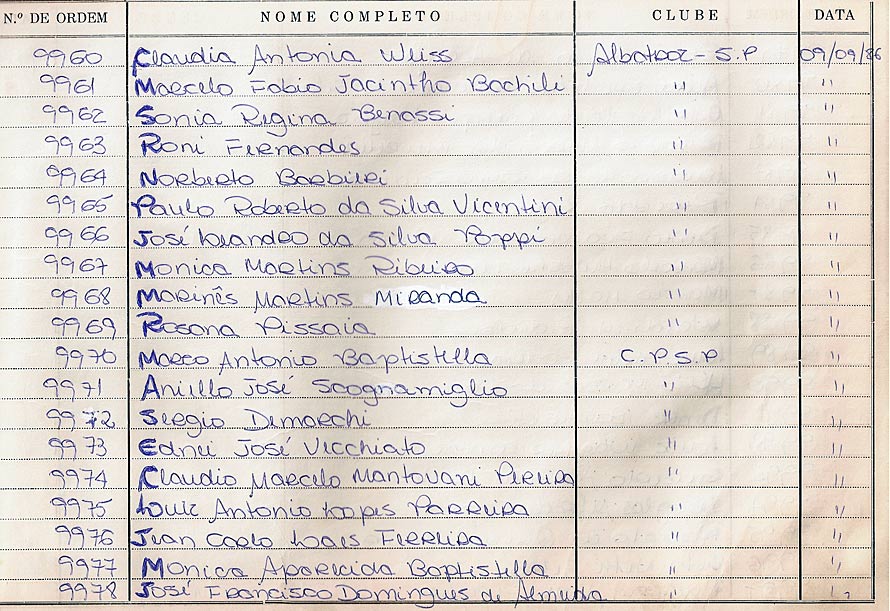 N.º DE ORDEM NOME COMPLETO CLUBE DATA
9960 Claudia Antonia Weiss Albatroz - S.P 09/09/86
9961 Marcelo Fabio Jacintho Bachili " "
9962 Sonia Regina Benassi " "
9963 Roni Fernandes " "
9964 Norberto Barbieri " "
9965 Paulo Roberto da Silva Vicentini " "
9966 José Leandro da Silva Poppi " "
9967 Monica Martins Ribeiro " "
9968 Marinês Martins Miranda " "
9969 Rosana Pissaia " "
9970 Marco Antonio Baptistella C.P.S.P "
9971 Aniello José Scognamiglio " "
9972 Sergio Demarchi " "
9973 Ednei José Vecchiato " "
9974 Claudio Marcelo Mantovani Pereira " "
9975 Luiz Antonio Lopes Parreira " "
9976 Jean Carlo Laes Ferreira " "
9977 Monica Aparecida Baptistella " "
9978 José Francisco Domingues de Almeida " "